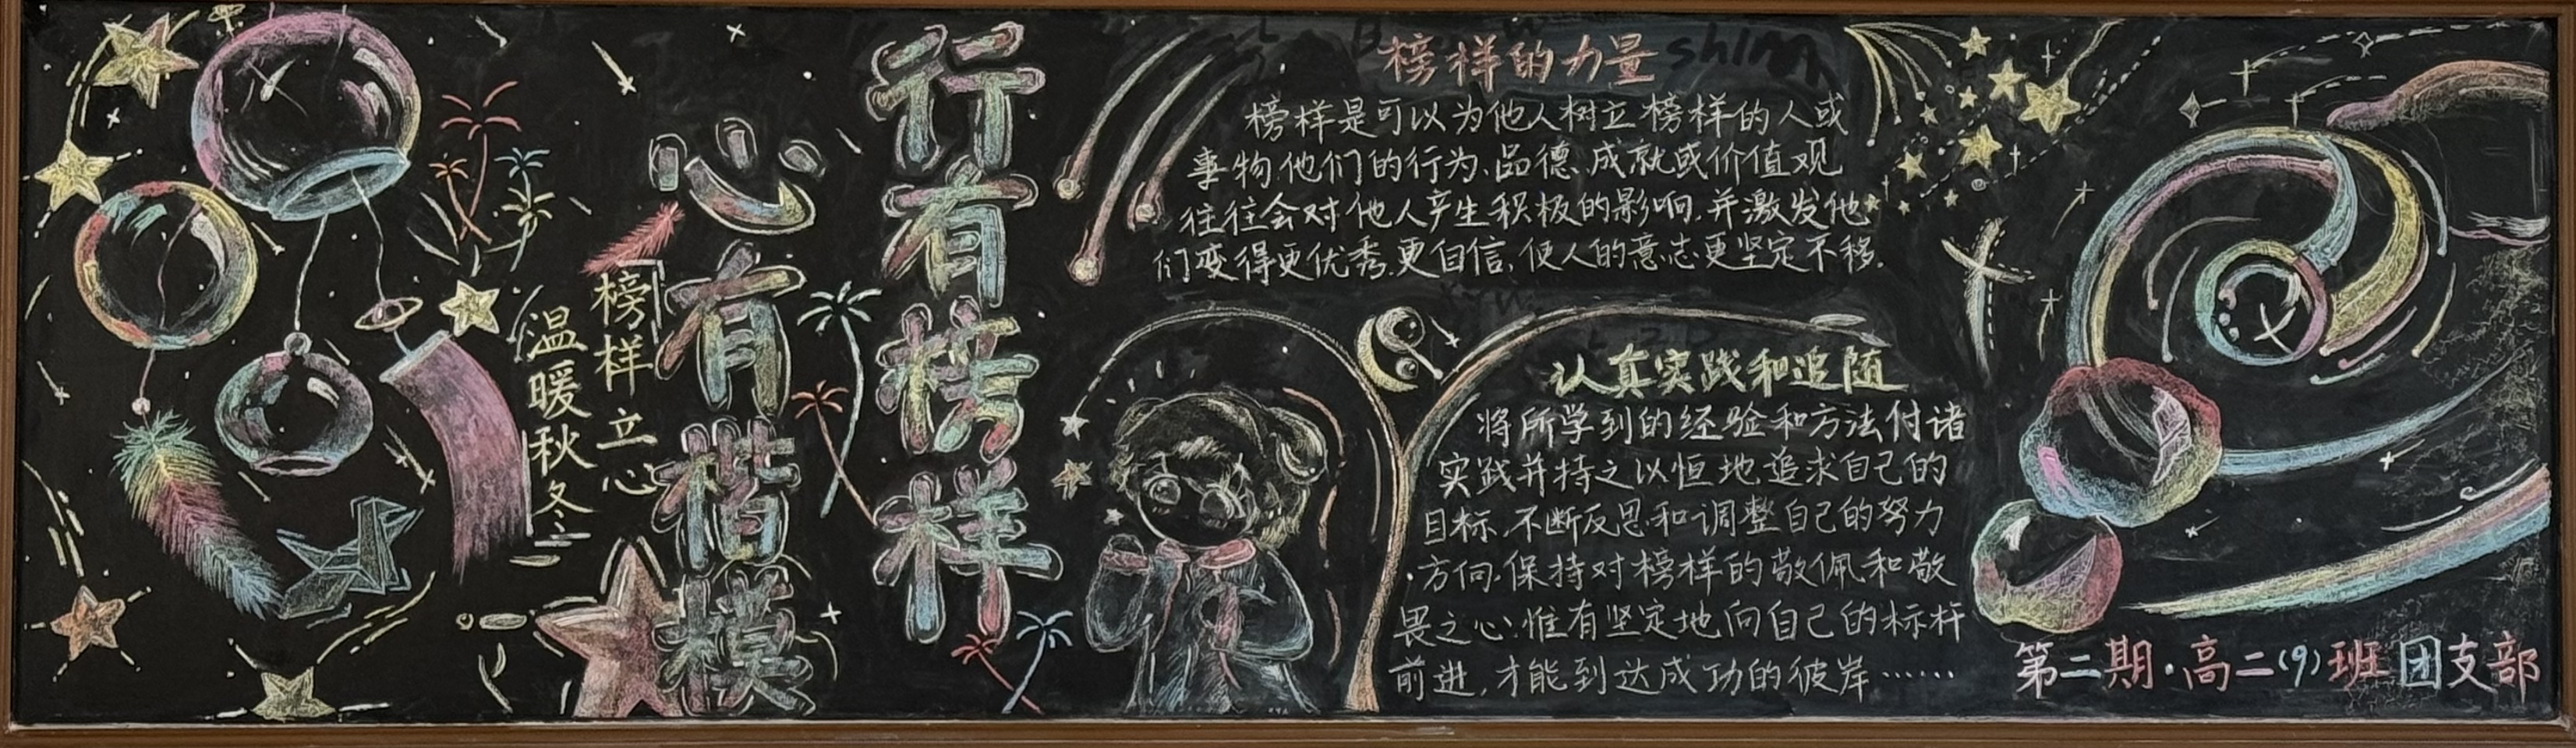 行有榜样
心有楷模
榜样立心
温暖秋冬
榜样的力量
榜样是可以为他人树立榜样的人或
事物,他们的行为、品德、成就或价值观
往往会对他人产生积极的影响,并激发他
们变得更优秀,更自信,使人的意志更坚定不移.
认真实践和追随
将所学到的经验和方法付诸
实践并持之以恒地追求自己的
目标,不断反思和调整自己的努力
方向,保持对榜样的敬佩和敬
畏之心!惟有坚定地向自己的标杆
前进,才能到达成功的彼岸……
第二期·高二(9)班团支部